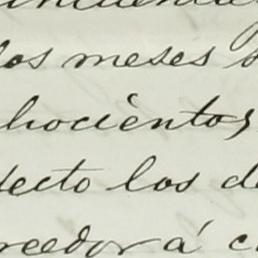 los meses
hocientos
fecto los de
reedor á c